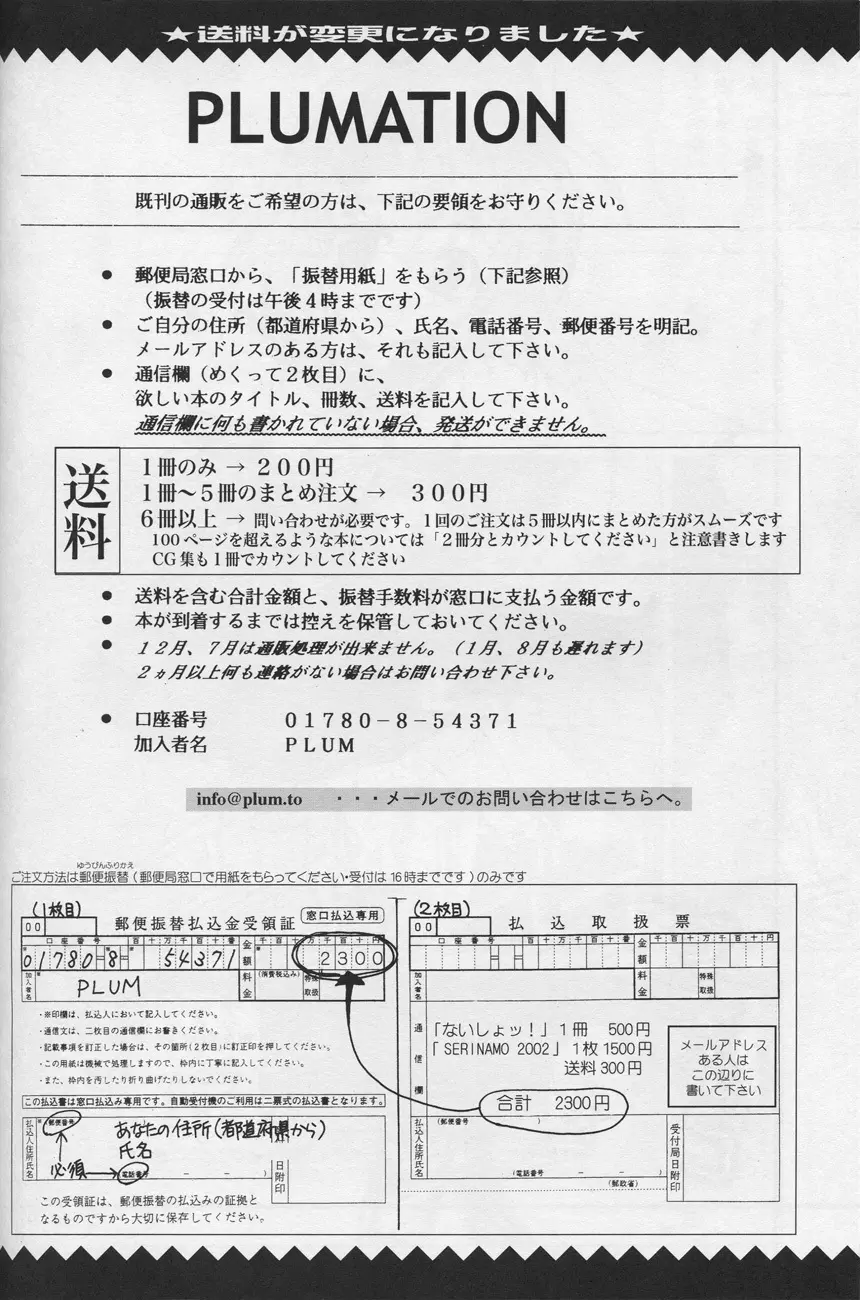 ★送料が変更になりました★
PLUMATION
既刊の通販をご希望の方は、下記の要領をお守りください。
● 郵便局窓口から、「振替用紙」をもらう（下記参照）
（振替の受付は午後４時までです）
● ご自分の住所（都道府県から）、氏名、電話番号、郵便番号を明記。
メールアドレスのある方は、それも記入して下さい。
● 通信欄（めくって２枚目）に、
欲しい本のタイトル、冊数、送料を記入して下さい。
通信欄に何も書かれていない場合、発送ができません。
送料
１冊のみ → ２００円
１冊～５冊のまとめ注文 → ３００円
６冊以上 → 問い合わせが必要です。１回のご注文は５冊以内にまとめた方がスムーズです
100ページを超えるような本については「２冊分とカウントしてください」と注意書きします
CG集も１冊でカウントしてください
● 送料を含む合計金額と、振替手数料が窓口に支払う金額です。
● 本が到着するまでは控えを保管しておいてください。
● １２月、７月は通販処理が出来ません。（１月、８月も遅れます）
２ヵ月以上何も連絡がない場合はお問い合わせ下さい。
● 口座番号 ０１７８０－８－５４３７１
加入者名 ＰＬＵＭ
info@plum.to ・・・メールでのお問い合わせはこちらへ。
ゆうびんふりかえ
ご注文方法は郵便振替（郵便局窓口で用紙をもらってください・受付は16時までです）のみです
(1枚目)
00
郵便振替払込金受領証
窓口払込専用
口座番号 百十万千百十番
金額
千百十万千百十円
01780-8- 54371
2300
加入者名
PLUM
料金
(消費税込み)
特殊取扱
・※印欄は、払込人において記入してください。
・通信文は、二枚目の通信欄にお書きください。
・記載事項を訂正した場合は、その箇所(２枚目)に訂正印を押してください。
・この用紙は機械で処理しますので、枠内に丁寧に記入してください。
・また、枠内を汚したり折り曲げたりしないでください。
この払込書は窓口払込み専用です。自動受付機のご利用は二票式の払込書となります。
払込人住所氏名
郵便番号
あなたの住所(都道府県から)
氏名
必須
電話番号 － －
日附印
この受領証は、郵便振替の払込みの証拠と
なるものですから大切に保存してください。
(2枚目)
00
払込取扱票
口座番号 百十万千百十番
金額
千百十万千百十円
加入者名
料金
特殊取扱
通信欄
「ないしょッ！」１冊 500円
「SERINAMO 2002」１枚 1500円
送料300円
合計 2300円
メールアドレス
ある人は
この辺りに
書いて下さい
払込人住所氏名
(郵便番号 )
(電話番号 － － )
受付局日附印
(郵政省)